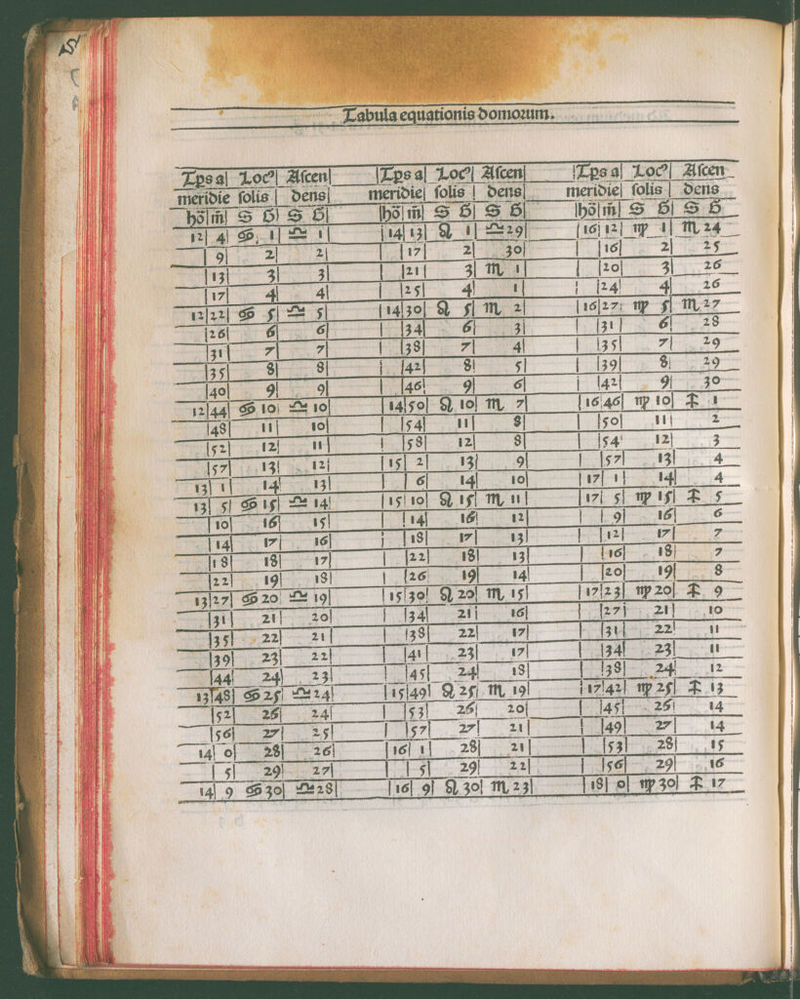 Tabula equationis domorum.
Tps a Locꝰ Ascen Tps a Locꝰ Ascen Tps a Locꝰ Ascen
meridie solis dens meridie solis dens meridie solis dens
hō m̄ S G S G hō m̄ S G S G hō m̄ S G S G
12 4 ♋ 1 ♎ 1 14 13 ♌ 1 ♎ 29 16 12 ♍ 1 ♏ 24
9 2 2 17 2 30 16 2 25
13 3 3 21 3 ♏ 1 20 3 26
17 4 4 25 4 1 24 4 26
12 22 ♋ 5 ♎ 5 14 30 ♌ 5 ♏ 2 16 27 ♍ 5 ♏ 27
26 6 6 34 6 3 31 6 28
31 7 7 38 7 4 35 7 29
35 8 8 42 8 5 39 8 29
40 9 9 46 9 6 42 9 30
12 44 ♋ 10 ♎ 10 14 50 ♌ 10 ♏ 7 16 46 ♍ 10 ♐ 1
48 11 10 54 11 8 50 11 2
52 12 11 58 12 8 54 12 3
57 13 12 15 2 13 9 57 13 4
13 1 14 13 6 14 10 17 1 14 4
13 5 ♋ 15 ♎ 14 15 10 ♌ 15 ♏ 11 17 5 ♍ 15 ♐ 5
10 16 15 14 16 12 9 16 6
14 17 16 18 17 13 12 17 7
18 18 17 22 18 13 16 18 7
22 19 18 26 19 14 20 19 8
13 27 ♋ 20 ♎ 19 15 30 ♌ 20 ♏ 15 17 23 ♍ 20 ♐ 9
31 21 20 34 21 16 27 21 10
35 22 21 38 22 17 31 22 11
39 23 22 41 23 17 34 23 11
44 24 23 45 24 18 38 24 12
13 48 ♋ 25 ♎ 24 15 49 ♌ 25 ♏ 19 17 42 ♍ 25 ♐ 13
52 26 24 53 26 20 45 26 14
56 27 25 57 27 21 49 27 14
14 0 28 26 16 1 28 21 53 28 15
5 29 27 5 29 22 56 29 16
14 9 ♋ 30 ♎ 28 16 9 ♌ 30 ♏ 23 18 0 ♍ 30 ♐ 17